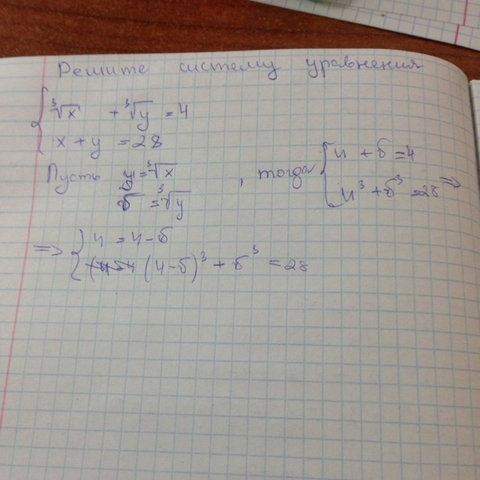 Решите систему уравнения
{ ∛x + ∛y = 4
x + y = 28
Пусть u = ∛x , тогда { u + б = 4
б = ∛y u³ + б³ = 28 =>
=> { u = 4 - б
(4 - б)³ + б³ = 28